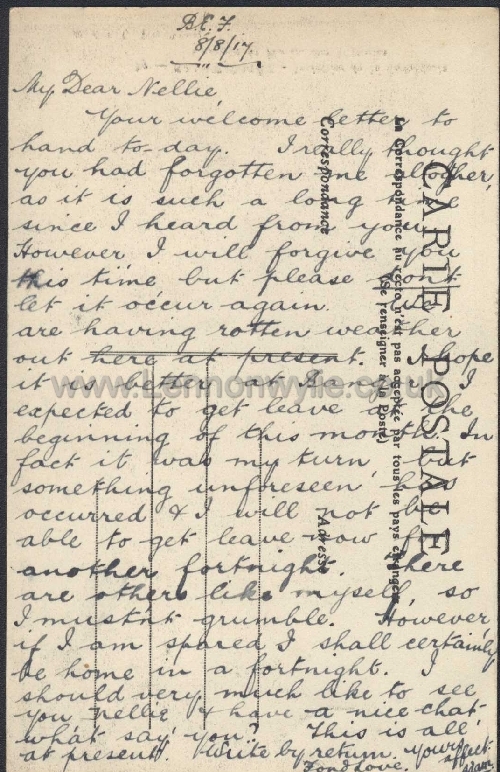 B.E.F.
8/8/17.
My Dear Nellie,
Your welcome letter to
hand to-day. I really thought
you had forgotten me altogether,
as it is such a long time
since I heard from you.
However I will forgive you
this time, but please don't
let it occur again. We
are having rotten weather
out here at present. I hope
it is better at Bangor. I
expected to get leave at the
beginning of this month. In
fact it was my turn, but
something unforeseen has
occurred & I will not be
able to get leave now for
another fortnight. There
are others like myself, so
I mustn't grumble. However,
if I am spared, I shall certainly
be home in a fortnight. I
should very much like to see
you Nellie & have a nice chat
what say you? This is all
at present. Write by return. Yours
affect.
Fond Love.
CARTE POSTALE
La Correspondance au recto n'est pas acceptée par tous les pays étrangers
(Se renseigner à la Poste)
Correspondance
Adresse
www.lennonwylie.co.uk